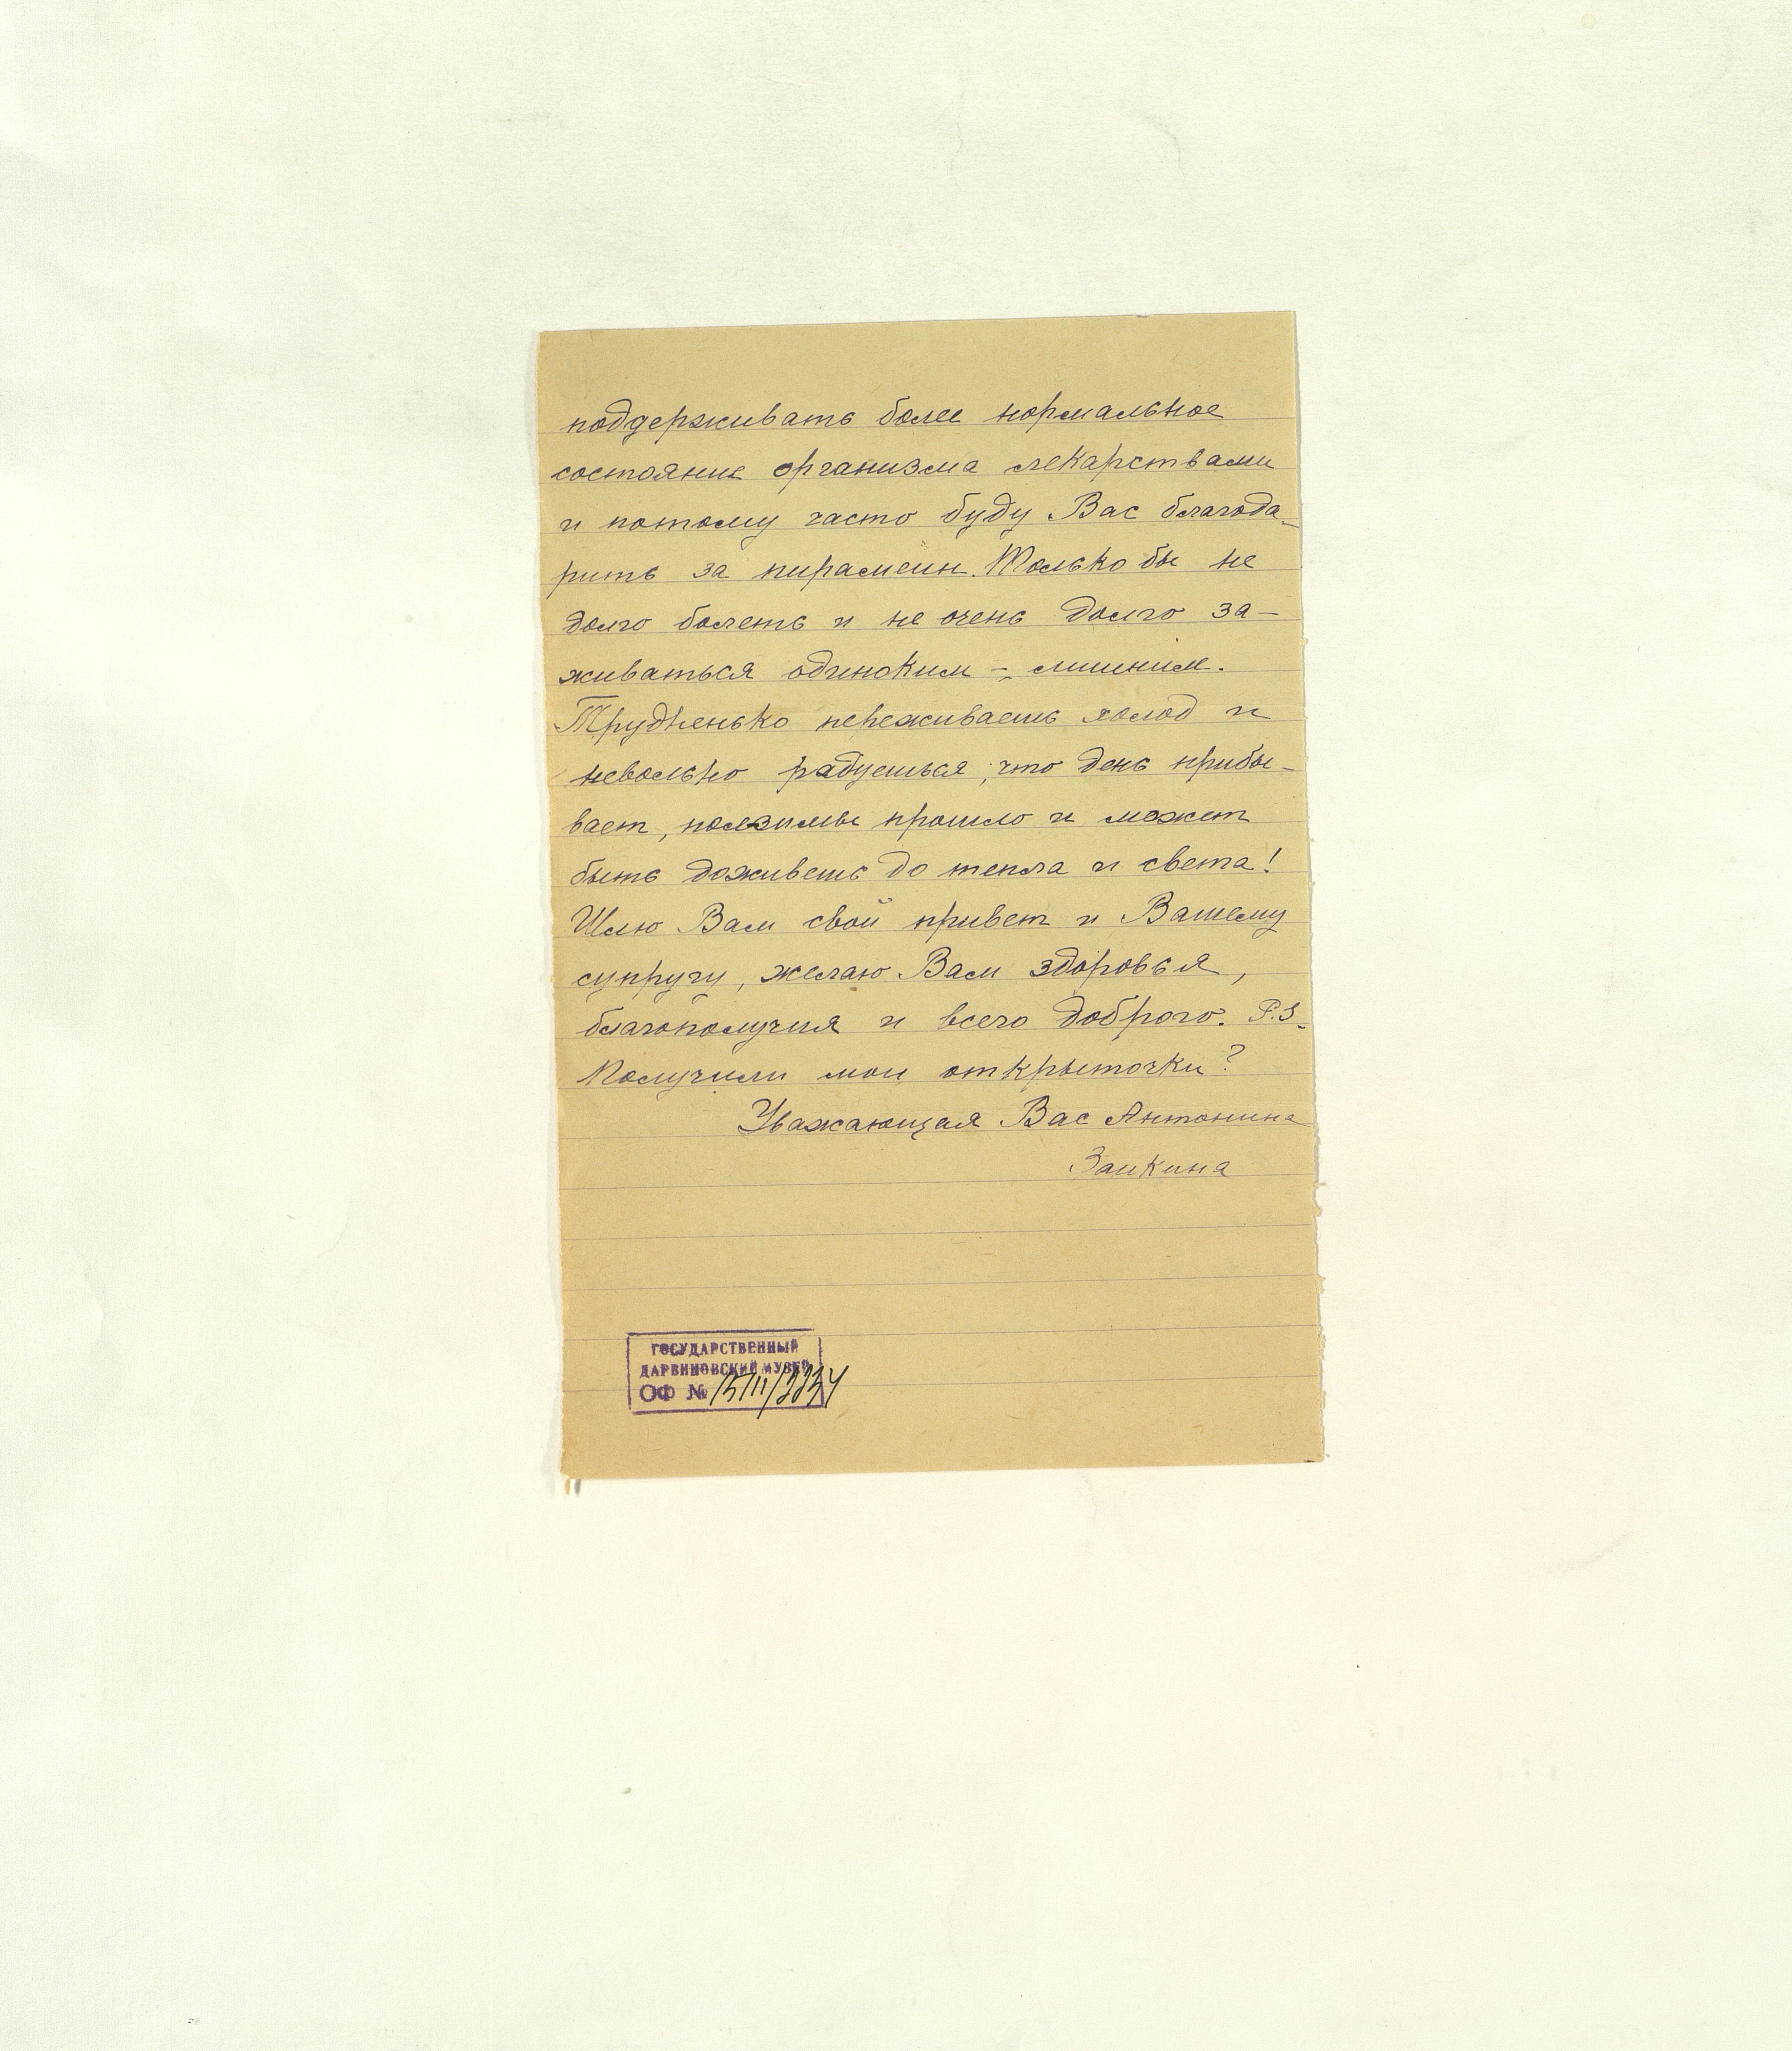 поддерживать более нормальное
состояние организма лекарствами
и потому часто буду Вас благода-
рить за пирамеин. Только бы не
долго болеть и не очень долго за-
живаться одиноким - лишним.
Трудненько переживаешь холод и
невольно радуешься, что день прибы-
вает, ползимы прошло и может
быть доживешь до тепла и света!
Шлю Вам свой привет и Вашему
супругу, желаю Вам здоровья,
благополучия и всего доброго. P.S.
Получили мои открыточки?
Уважающая Вас Антонина
Заикина
ГОСУДАРСТВЕННЫЙ
ДАРВИНОВСКИЙ МУЗЕЙ
ОФ №